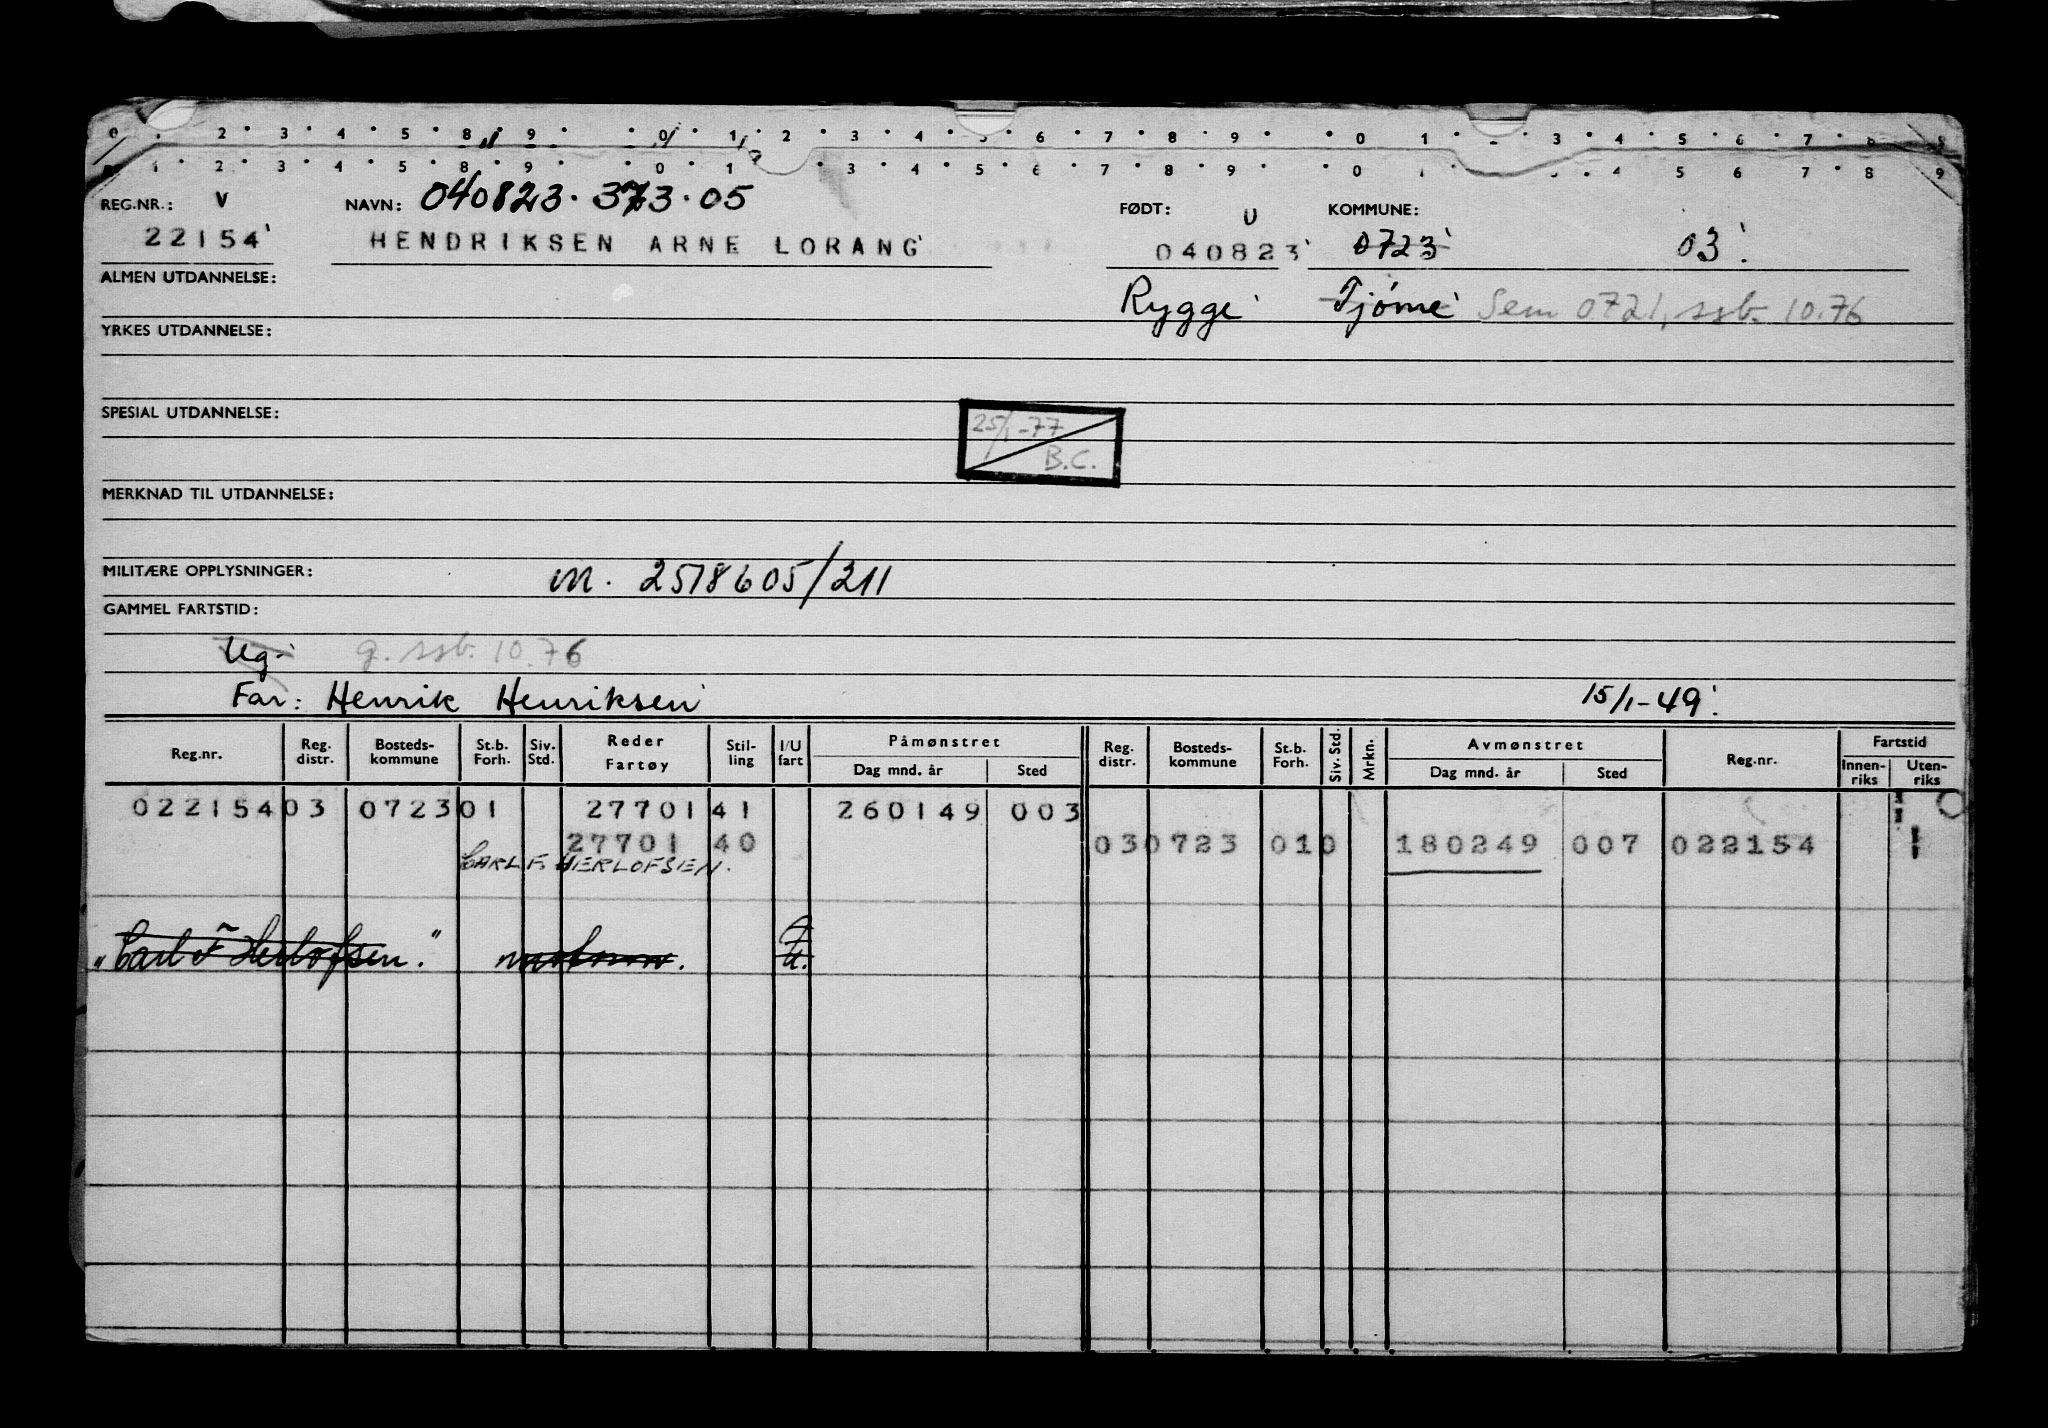 0 2 3 4 5 8 9 0 1 2 3 4 5 6 7 8 9 0 1 3 4 5 6 7 8 9
1 2 3 4 5 8 9 0 1 3 4 5 6 7 8 9 0 1 4 5 6 7 8 9
REG.NR.: V NAVN: 040823·373·05 FØDT: U KOMMUNE:
22154 HENDRIKSEN ARNE LORANG 040823 0723 03
ALMEN UTDANNELSE: Rygge Tjøme Sem 0721, ssb. 10.76
YRKES UTDANNELSE:
SPESIAL UTDANNELSE:
25/1-77
B.C.
MERKNAD TIL UTDANNELSE:
MILITÆRE OPPLYSNINGER: M. 2578605/211
GAMMEL FARTSTID:
Ug. g. ssb. 10.76
Far: Henrik Henriksen 15/1-49
Reg.nr. Reg. distr. Bosteds-kommune St.b. Forh. Siv. Std. Reder Fartøy Stil-ling I/U fart Påmønstret Dag mnd. år Sted Reg. distr. Bosteds-kommune St.b. Forh. Siv. Std. Mrkn. Avmønstret Dag mnd. år Sted Reg.nr. Fartstid Innen-riks Uten-riks
022154 03 0723 01 27701 41 260149 003
27701 40 03 0723 01 0 180249 007 022154 1
CARL F. HERLOFSEN.
"Carl F Herlofsen." U.